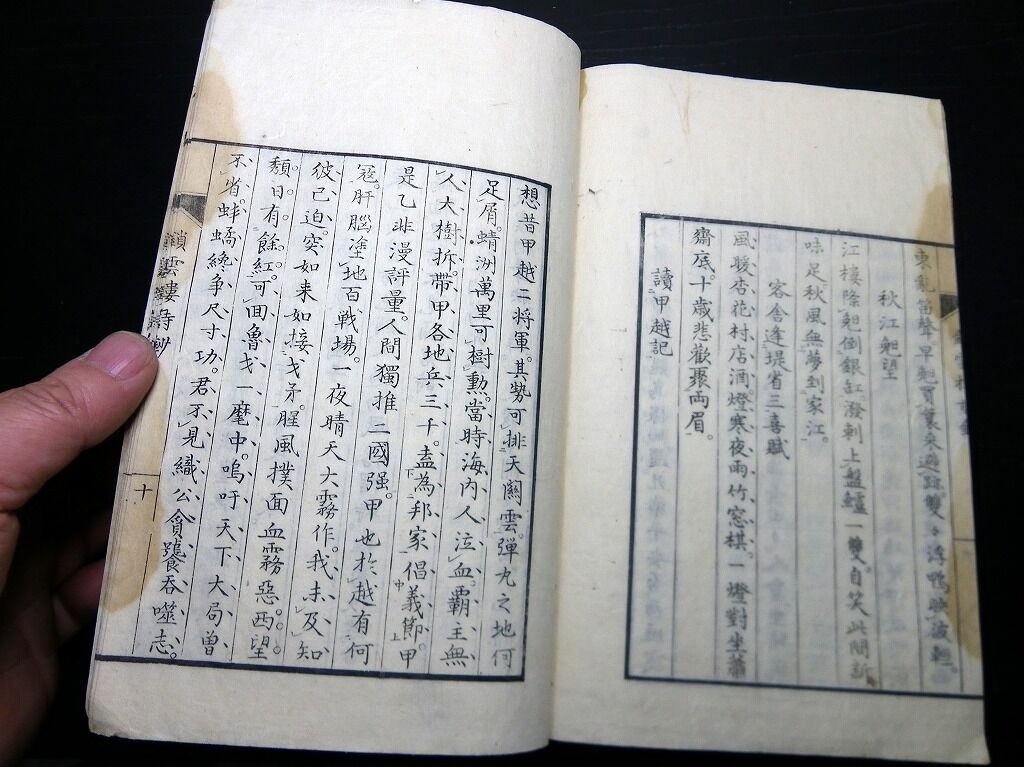 東亂笛聲。早
秋江晩望
江樓除晩倒銀缸。潑剌上盤鱸一雙。自笑此間
味足。秋風無夢到家江。
客舍逢堤省三喜賦
風暖杏花村店酒。燈寒夜雨竹窓棋。一燈對坐蕭
齋底。十歳悲歡聚両眉。
讀甲越記
想昔甲越二將軍。其勢可排天闕雲。彈丸之地何
足屑。蜻洲萬里可樹勲。當時海内人泣血。覇主無
人大樹拆。帶甲各地兵三千。盍為邦家倡義節。甲
是乙非漫評量。人間獨推二國强。甲也於越有何
冦。肝腦塗地百戰場。一夜晴天大霧作。我未及知
彼已迫。突如来如接戈矛。腥風撲面血霧惡。西望
頽日有餘紅。可回魯戈一麾中。嗚呼天下大局曾
不省。蚌蟜終争尺寸功。君不見織公貪饕吞噬志。
鎖雲樓詩鈔
十